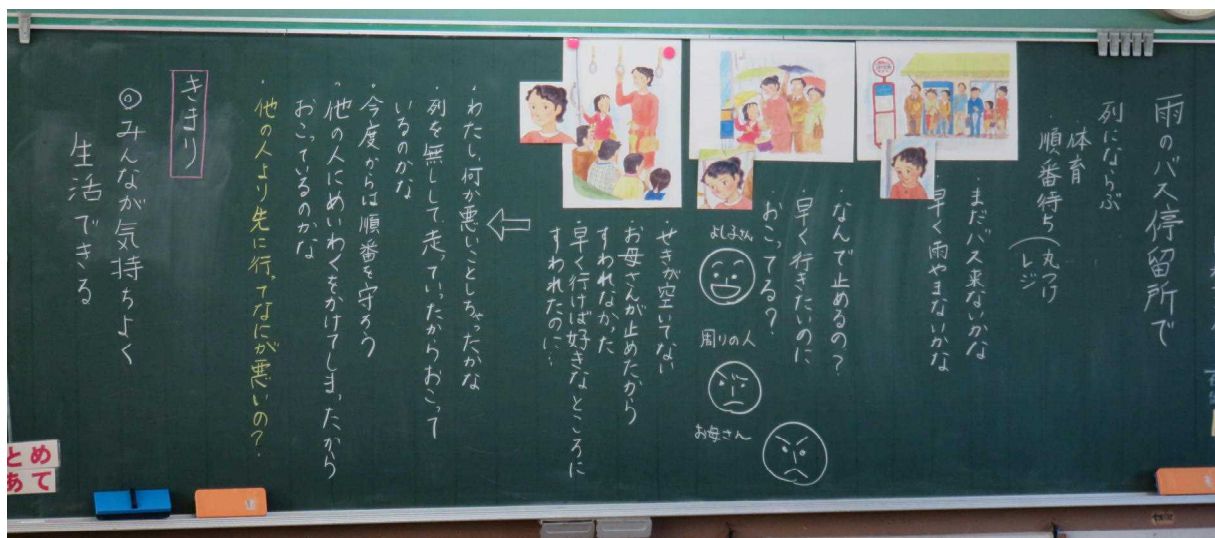 雨のバス停留所で
列にならぶ
体育
順番待ち(丸つけ
レジ
・まだバス来ないかな
・早く雨やまないかな
・なんで止めるの?
・早く行きたいのに
・おこってる?
よし子さん
周りの人
お母さん
・せきが空いてない
・お母さんが止めたから
すわれなかった
・早く行けば好きなところに
すわれたのに…
・わたし、何か悪いことしちゃったかな
・列を無しして、走っていったからおこって
いるのかな
・今度からは順番を守ろう
・他の人にめいわくをかけてしまったから
おこっているのかな
・他の人より先に行ってなにが悪いの?
きまり
◎みんなが気持ちよく
生活できる
めあて
まとめ